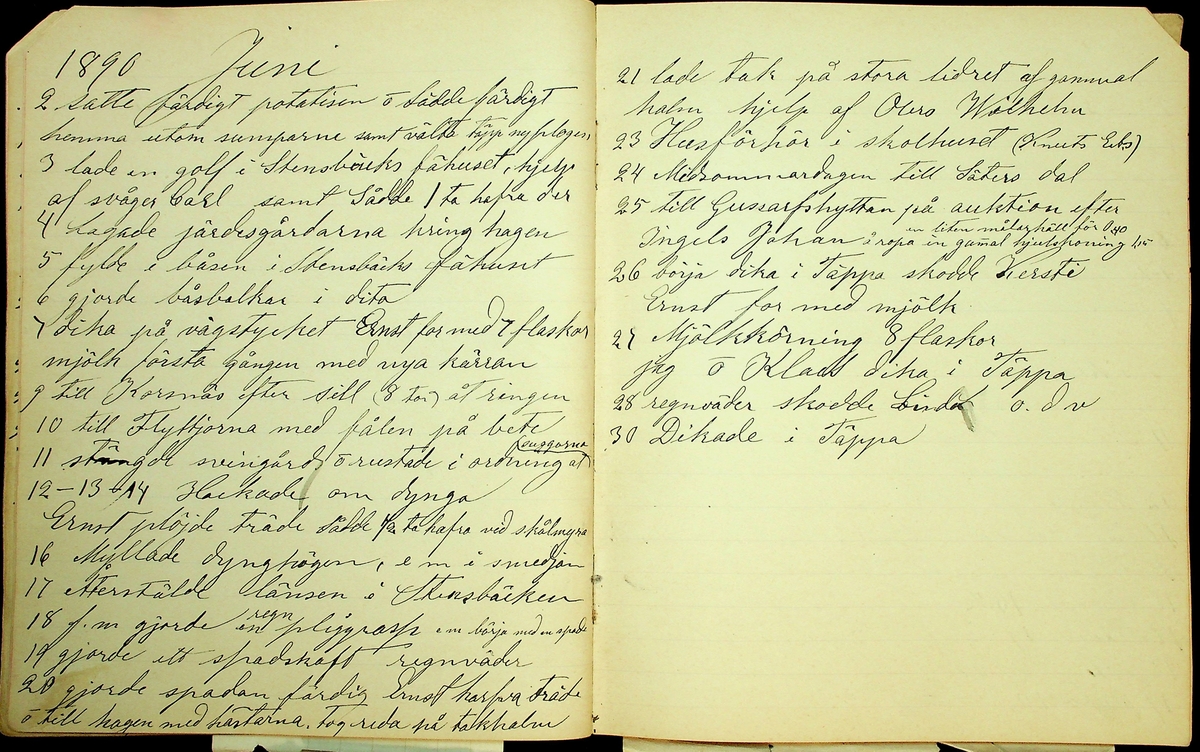 1890 Juni
2 satte färdigt potatisen o sådde färdigt
hemma utom sumparne samt välta ny plogen
3 lade in golf i Stensbäcks fähuset, hjelp
af svåger Carl samt sådde 1 ta hafra der
4 Lagade järdesgårdarna kring hagen
5 fylde i båsen i Stensbäcks fähuset
6 gjorde båsbalkar i dito
7 dika på vägstycket Ernst for med 7 flaskor
mjölk första gången med nya kärran
9 till Korsnäs efter sill (8 tor) åt ringen
10 till Flyttjorna med fålen på bete
11 stängde svingård o rustade i ordning åt suggorna
12-13-14 Hackade om dynga
Ernst plöjde träde sådde 1/2 ta hafra ved skålmyra
16 Myllade dynghögen, e m i smedjan
17 återstälde länsen i Stensbäcken
18 f.m gjorde en plijgrasp regn e m börja med en spade
19 gjorde ett spadskaft regnväder
20 gjorde spadan färdig Ernst harfva träde
o till hagen med hästarna. Tog reda på takhalm
21 lade tak på stora lidret af gammal
halm hjelp af Olers Wilhelm
23 Husförhör i skolhuset (Knuts Erks)
24 Midsommardagen till Säters dal
25 till Gussarfshyttan på auktion efter
Ingels Johan å ropa en liten målerhäll för 0,40 en gamal hjulsponing 1,15
26 börja dika i Täppa skodde Kersti
Ernst for med mjölk
27 Mjölkkörning 8 flaskor
jag o Klaes dika i Täppa
28 regnväder skodde Linda o. d v
30 Dikade i Täppa